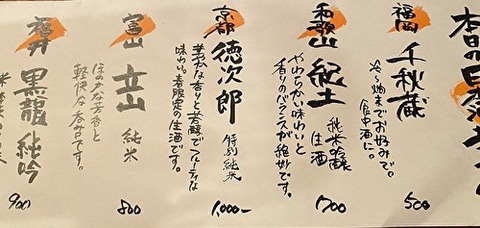 本日の日本
福岡 千秋蔵
冷〜燗までお好みで。
食中酒に。
500
和歌山 紀土
純米吟醸
生酒
やわらかい味わいと
香りのバランスが絶妙です。
700
京都 徳次郎
特別純米
華やかな香りと芳醇でフルーティな
味わい。春限定の生酒です。
1,000-
富山 立山
純米
ほのかな香と
軽快な呑み口です。
800
福井 黒龍 純吟
900